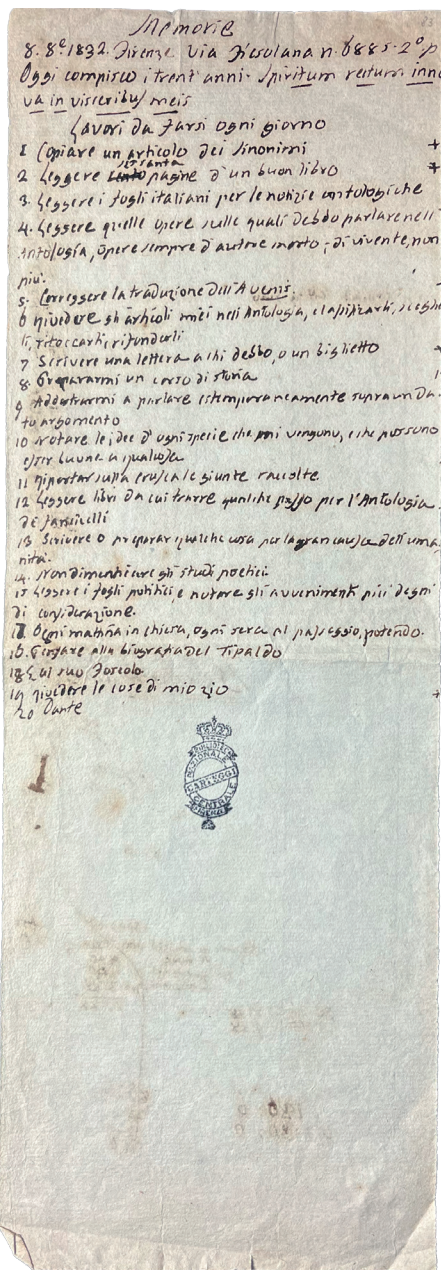 Memorie
8. 8e. 1832. Firenze via Fiesolana n. 6885. 2° p.
Oggi compisco i trent'anni. Spiritum rectum inno
va in visceribus meis
Lavori da farsi ogni giorno
1 Copiare un articolo dei sinonimi +
2 Leggere sessanta pagine d'un buon libro +
3. Leggere i fogli italiani per le notizie
4. Leggere quelle opere sulle quali debbo parlare nell'
Antologia, opere sempre d'autore morto; di vivente, non
più.
5. Correggere la traduzione dell'Avenir.
6 Rivedere gli articoli miei nell'Antologia, classificarli, sceglier
li, ritoccarli, rifonderli
7 Scrivere una lettera a chi debbo, o un biglietto
8 Prepararmi un corso di storia
9 Addestrarmi a parlare estemporaneamente sopra un da
to argomento
10 Notare le idee d'ogni specie che mi vengono, e che possono
esser buone a qualcosa
11 Riportar sulla crusca le giunte raccolte
12 Leggere libri da cui trarre qualche passo per l'Antologia
de' fanciulli
13 Scrivere o preparar qualche cosa per la gran causa dell'uma
nità.
14. Non dimenticare gli studi poetici
15 Leggere i fogli politici e notare gli avvenimenti più degni
di considerazione.
17. Ogni mattina in chiesa, ogni sera al passeggio, potendo.
16. Pensare alla biografia del Tipaldo
18 E al suo Foscolo
19 Rivedere le cose di mio zio +
20 Dante
BIBLIOTECA
NAZIONALE
CAREGGI
CENTRALE
FIRENZE